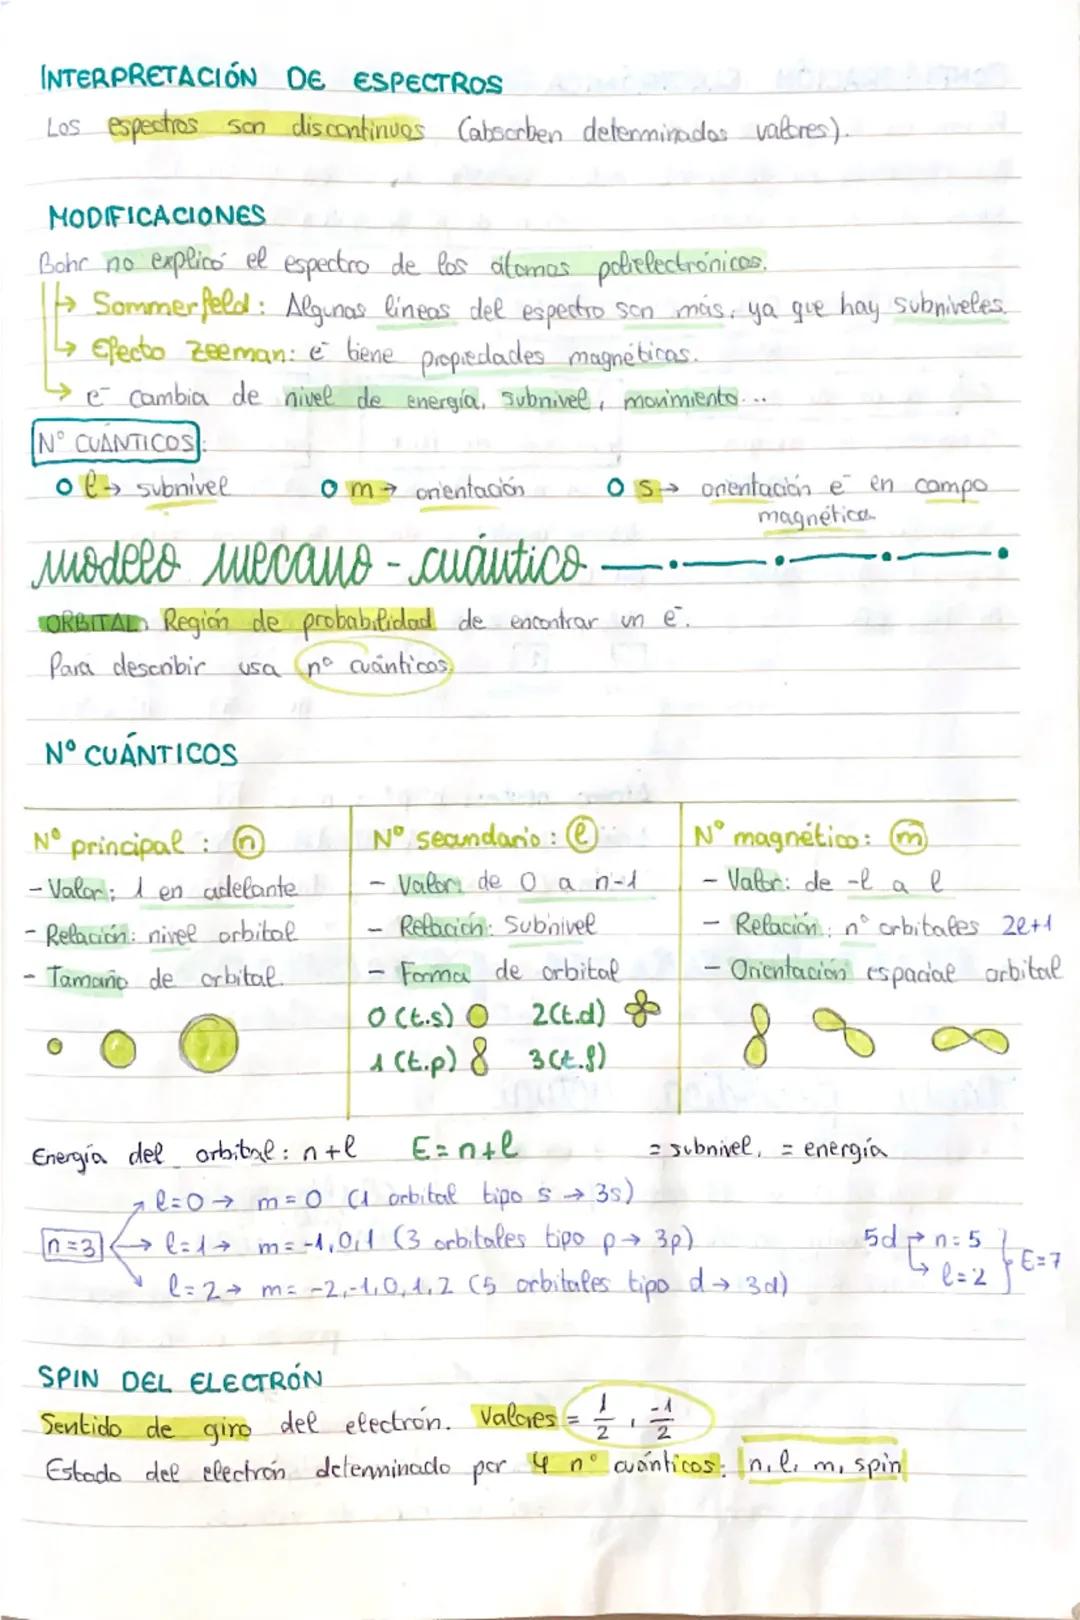 INTERPRETACIÓN DE ESPECTROS
Los espectros son discontinuos (absorben determinados valores).
MODIFICACIONES
Bohr no explicó el espectro de los átomos polielectrónicos.
→ Sommerfeld: Algunas líneas del espectro son más, ya que hay subniveles.
→ Efecto Zeeman: e⁻ tiene propiedades magnéticas.
→ e⁻ cambia de nivel de energía, subnivel, movimiento...
Nº CUÁNTICOS:
o l → subnivel o m → orientación o s → orientación e⁻ en campo
magnético
modelo mecano-cuántico
ORBITAL: Región de probabilidad de encontrar un e⁻.
Para describir usa nº cuánticos
Nº CUÁNTICOS
Nº principal: n
- Valor: 1 en adelante
- Relación: nivel orbital
- Tamaño de orbital.
Nº secundario: l
- Valor: de 0 a n-1
- Relación: Subnivel
- Forma de orbital
0 (t.s) 2(t.d)
1 (t.p) 3(t.f)
Nº magnético: m
- Valor: de -l a l
- Relación: nº orbitales 2l+1
- Orientación espacial orbital
Energía del orbital: n+l E=n+l = subnivel, = energía
l=0 → m=0 (1 orbital tipo s → 3s)
n=3 → l=1 → m=-1,0,1 (3 orbitales tipo p → 3p)
l=2 → m= -2,-1,0,1,2 (5 orbitales tipo d → 3d)
5d → n=5
→ l=2 } E=7
SPIN DEL ELECTRÓN
Sentido de giro del electrón. Valores = 1/2, -1/2
Estado del electrón determinado por 4 nº cuánticos: n, l, m, spin